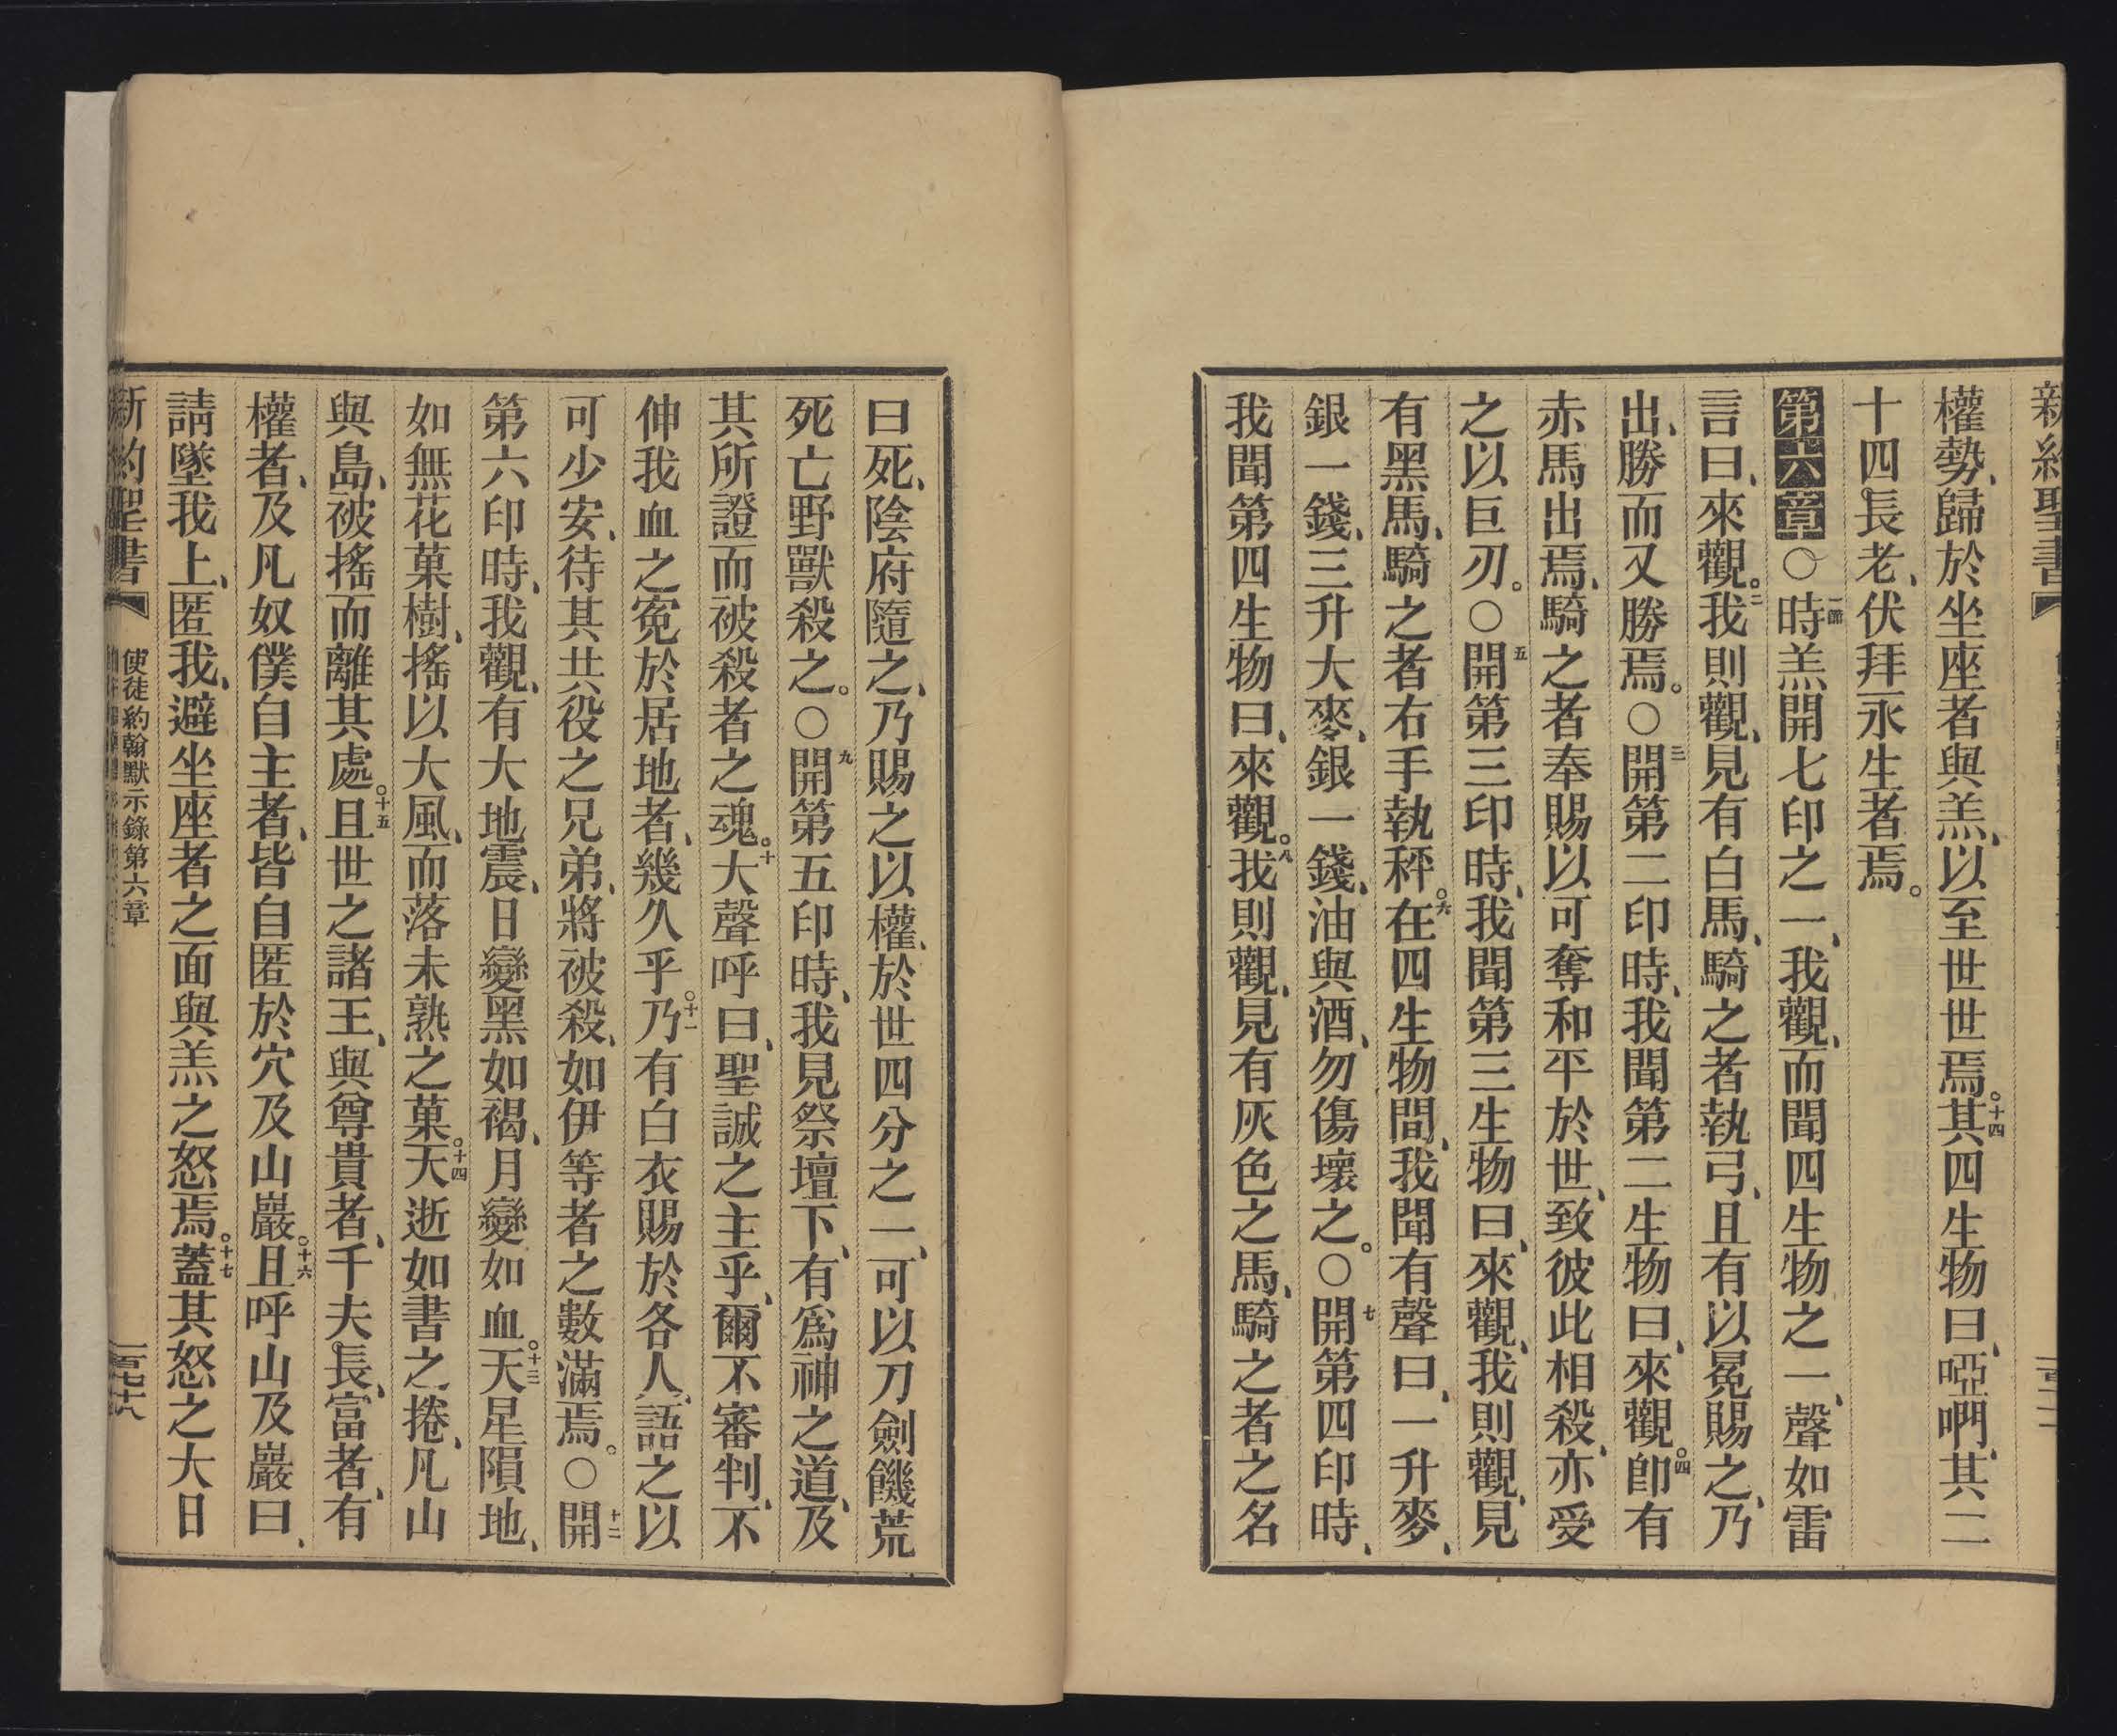 新約聖書
權勢、歸於坐座者與羔、以至世世焉。十四其四生物曰、啞㖿、其二
十四長老、伏拜永生者焉。
第六章○一節時羔開七印之一、我觀、而聞四生物之一、聲如雷
言曰、來觀。二我則觀、見有白馬、騎之者執弓、且有以冕賜之、乃
出、勝而又勝焉。○三開第二印時、我聞第二生物曰、來觀。四卽有
赤馬出焉、騎之者奉賜以可奪和平於世、致彼此相殺、亦受
之以巨刃。○五開第三印時、我聞第三生物曰、來觀、我則觀、見
有黑馬、騎之者右手執秤。六在四生物間、我聞有聲曰、一升麥、
銀一錢、三升大麥、銀一錢、油與酒、勿傷壞之。○七開第四印時、
我聞第四生物曰、來觀。八我則觀、見有灰色之馬、騎之者之名
曰死、陰府隨之、乃賜之以權、於世四分之一、可以刀劍饑荒
死亡野獸殺之。○九開第五印時、我見祭壇下、有爲神之道、及
其所證而被殺者之魂。十大聲呼曰、聖誠之主乎、爾不審判、不
伸我血之冤於居地者、幾久乎。十一乃有白衣賜於各人、語之以
可少安、待其共役之兄弟、將被殺、如伊等者之數滿焉。○十二開
第六印時、我觀、有大地震、日變黑如褐、月變如血。十三天星隕地、
如無花菓樹、搖以大風、而落未熟之菓。十四天逝如書之捲、凡山
與島、被搖而離其處。十五且世之諸王、與尊貴者、千夫長、富者、有
權者、及凡奴僕自主者、皆自匿於穴及山巖。十六且呼山及巖曰、
請墜我上、匿我、避坐座者之面與羔之怒焉。十七蓋其怒之大日
新約聖書 使徒約翰默示錄第六章 一百七十八